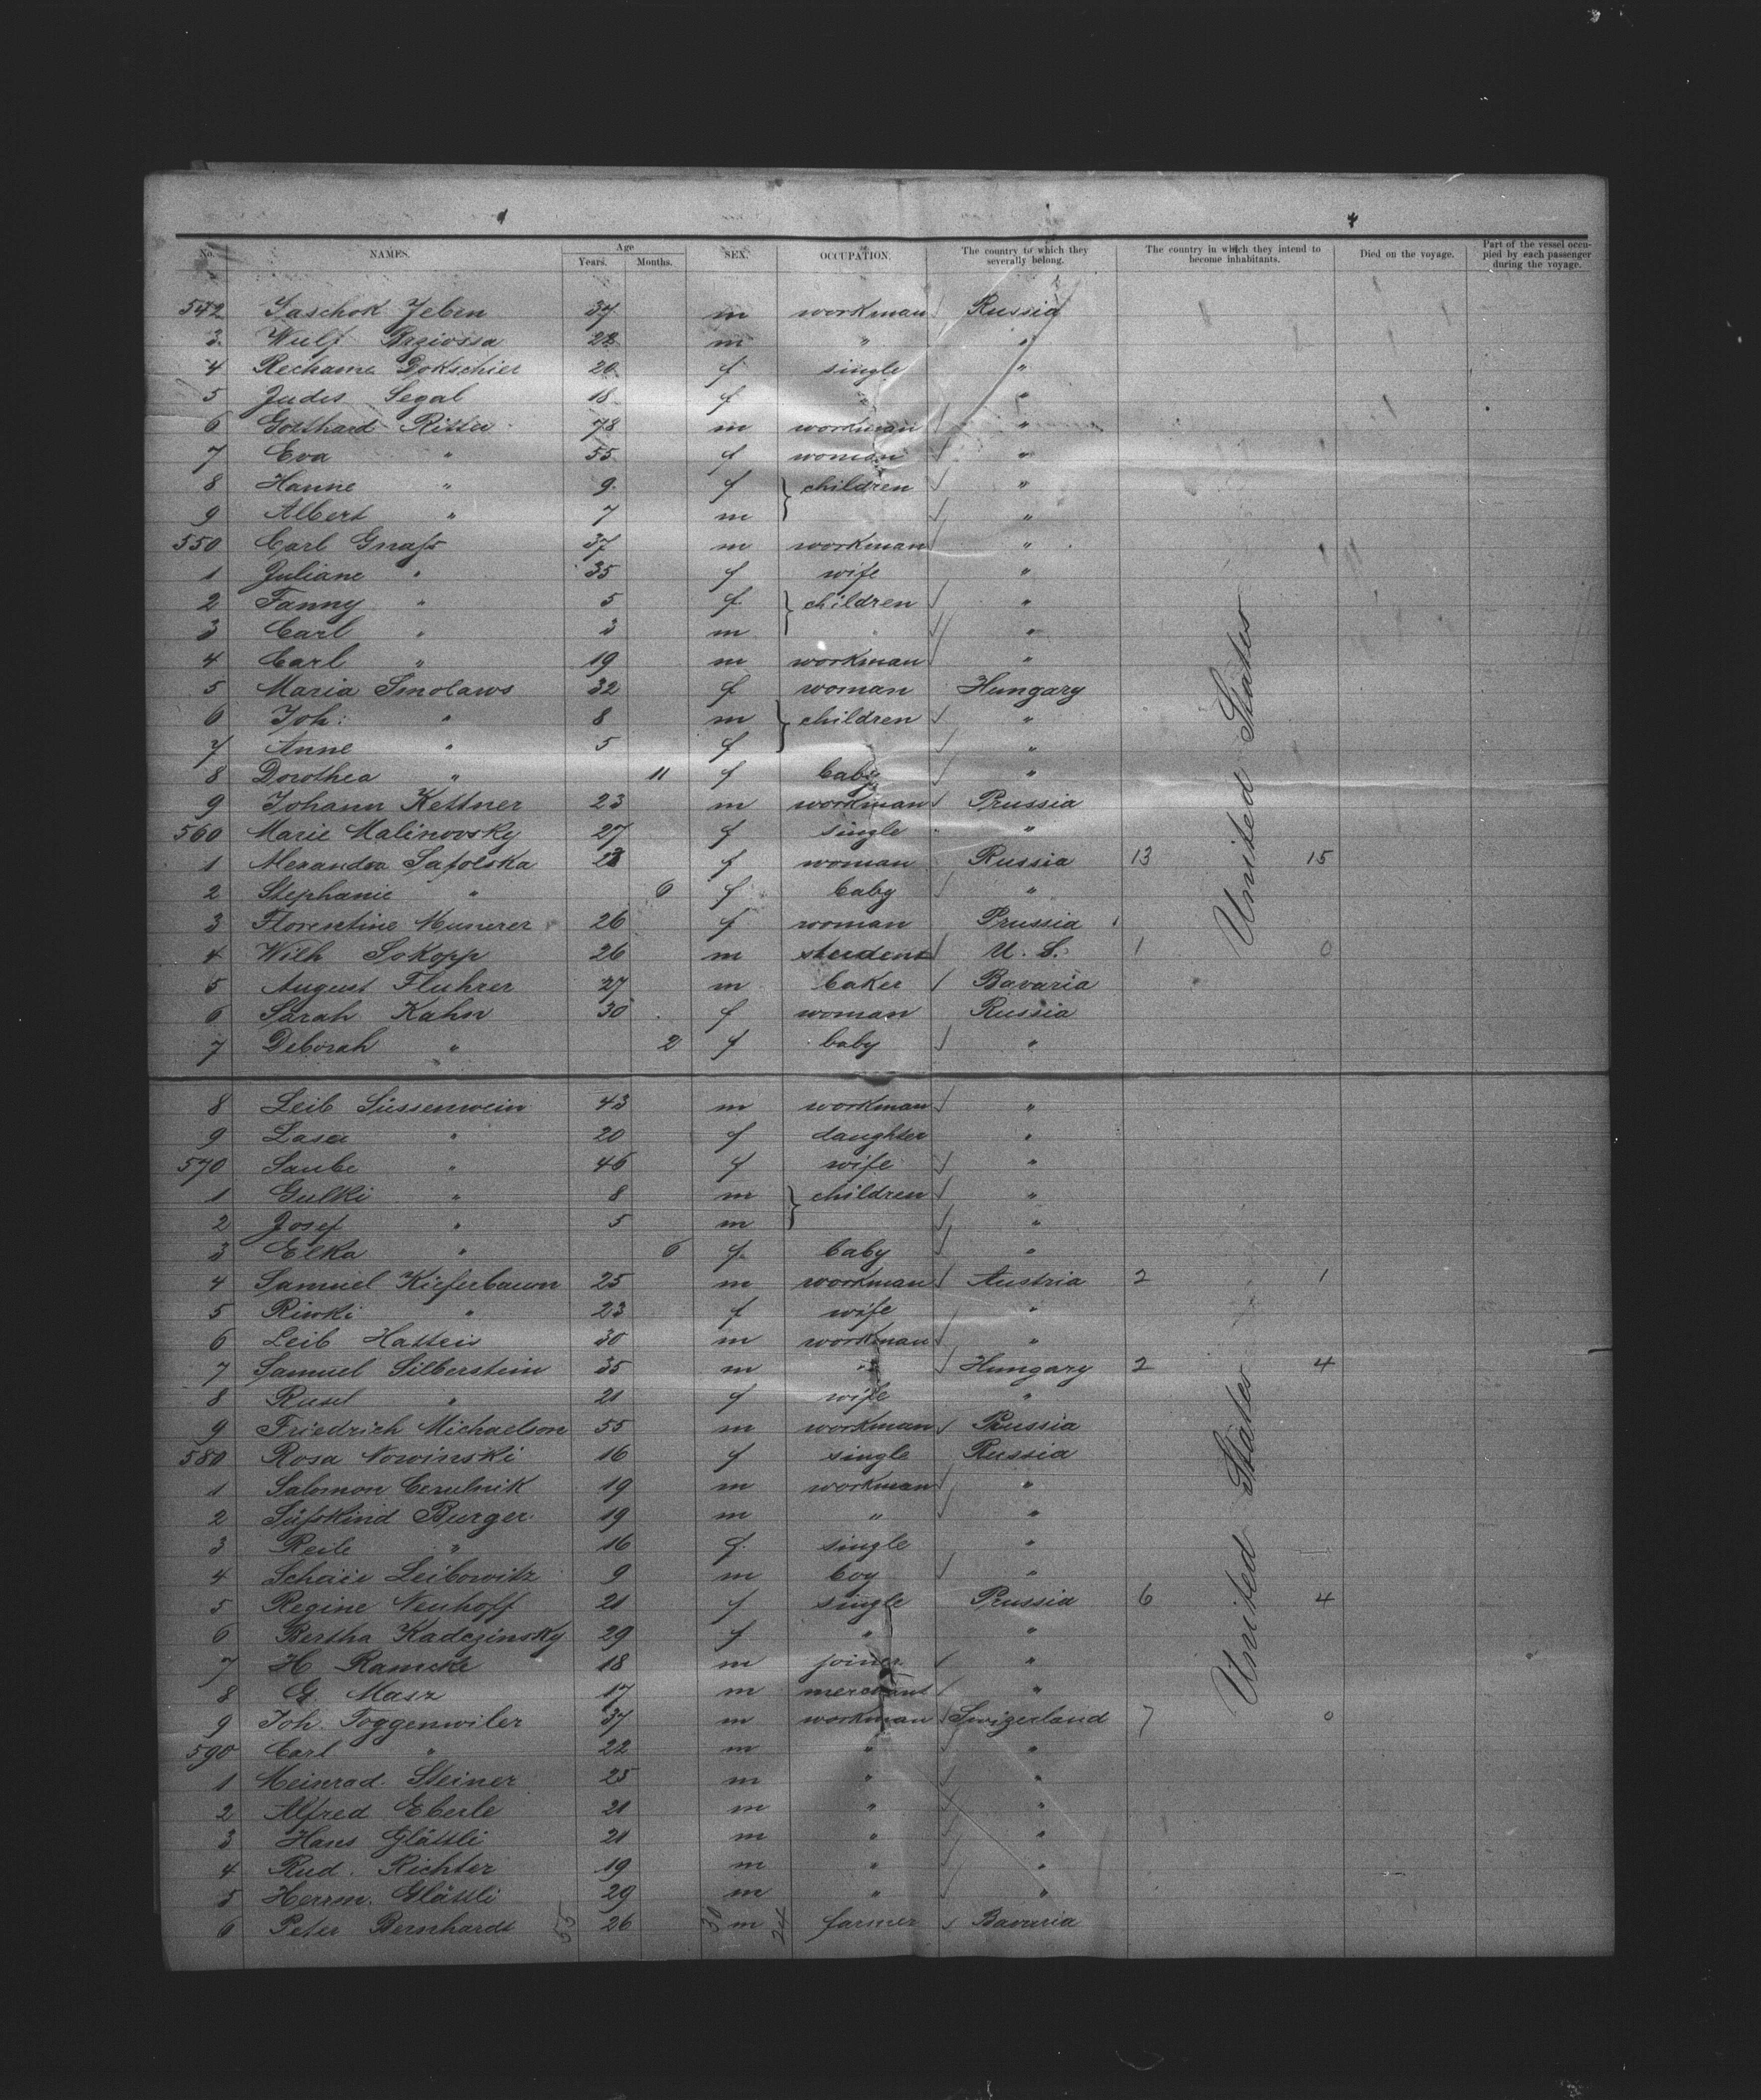 4
No. NAMES. Age Years. Months. SEX. OCCUPATION. The country to which they severally belong. The country in which they intend to become inhabitants. Died on the voyage. Part of the vessel occupied by each passenger during the voyage.
542 Jeben 37 m workman Russia
3 Wulf 22 m " "
4 20 f single "
5 Judes Segal 18 f " "
6 Gotthard Ritter 78 m workman "
7 Eva " 55 f woman "
8 Hanne " 9 f children "
9 Albert " 7 m "
550 Carl Gnass 37 m workman "
1 Juliane " 35 f wife "
2 Fanny " 5 f children "
3 Carl " 3 m "
4 Carl " 19 m workman "
5 Maria Smolaws 32 f woman Hungary
6 Joh: " 8 m children "
7 Anne " 5 f "
8 Dorothea " 11 f baby "
9 Johann Kettner 23 m workman Prussia
560 Marie Malinovsky 27 f single "
1 Alexandra Sapolska f woman Russia 13 15
2 Stephanie " 6 f baby "
3 Florentine 26 f woman Prussia
4 Wilh Sokopp 26 m student U. S. 1 0
5 August Fluhrer 27 m baker Bavaria
6 Sarah Kahn 30 f woman Russia
7 Deborah " 2 f baby "
United States
8 Leib Süssenwein 43 m workman "
9 Laser " 20 f daughter "
570 Taube " 46 f wife "
1 Gulki " 8 m children "
2 Josef " 5 m "
3 Elka " 6 f baby "
4 Samuel Kieferbaum 25 m workman Austria 2 1
5 Riwki " 23 f wife "
6 Leib 30 m workman "
7 Samuel Silberstein 35 m " Hungary 2 4
8 " 21 f wife "
9 Friedrich Michaelson 55 m workman
580 Rosa Nowinski 16 f single Russia
1 Salomon Cerulnik 19 m workman "
2 Süsskind Burger 19 m " "
3 Reile " 16 f single "
4 Leibowitz 9 m boy "
5 Regine Neuhoff 21 f single Prussia 6 4
6 Bertha Kadezinsky 29 f " "
7 H. Ramcke 18 m joiner "
8 G. Masz 17 m merchant "
9 Joh. Toggenwiler 37 m workman Swizerland 7 0
590 Carl " 22 m " "
1 Meinrad Steiner 25 m " "
2 Alfred Eberle 21 m " "
3 Hans Glättli 21 m " "
4 Rud. Richter 19 m " "
5 Herrm. Glättli 29 m " "
6 Peter Bernhardt 55 26 30 m 24 farmer Bavaria
United States